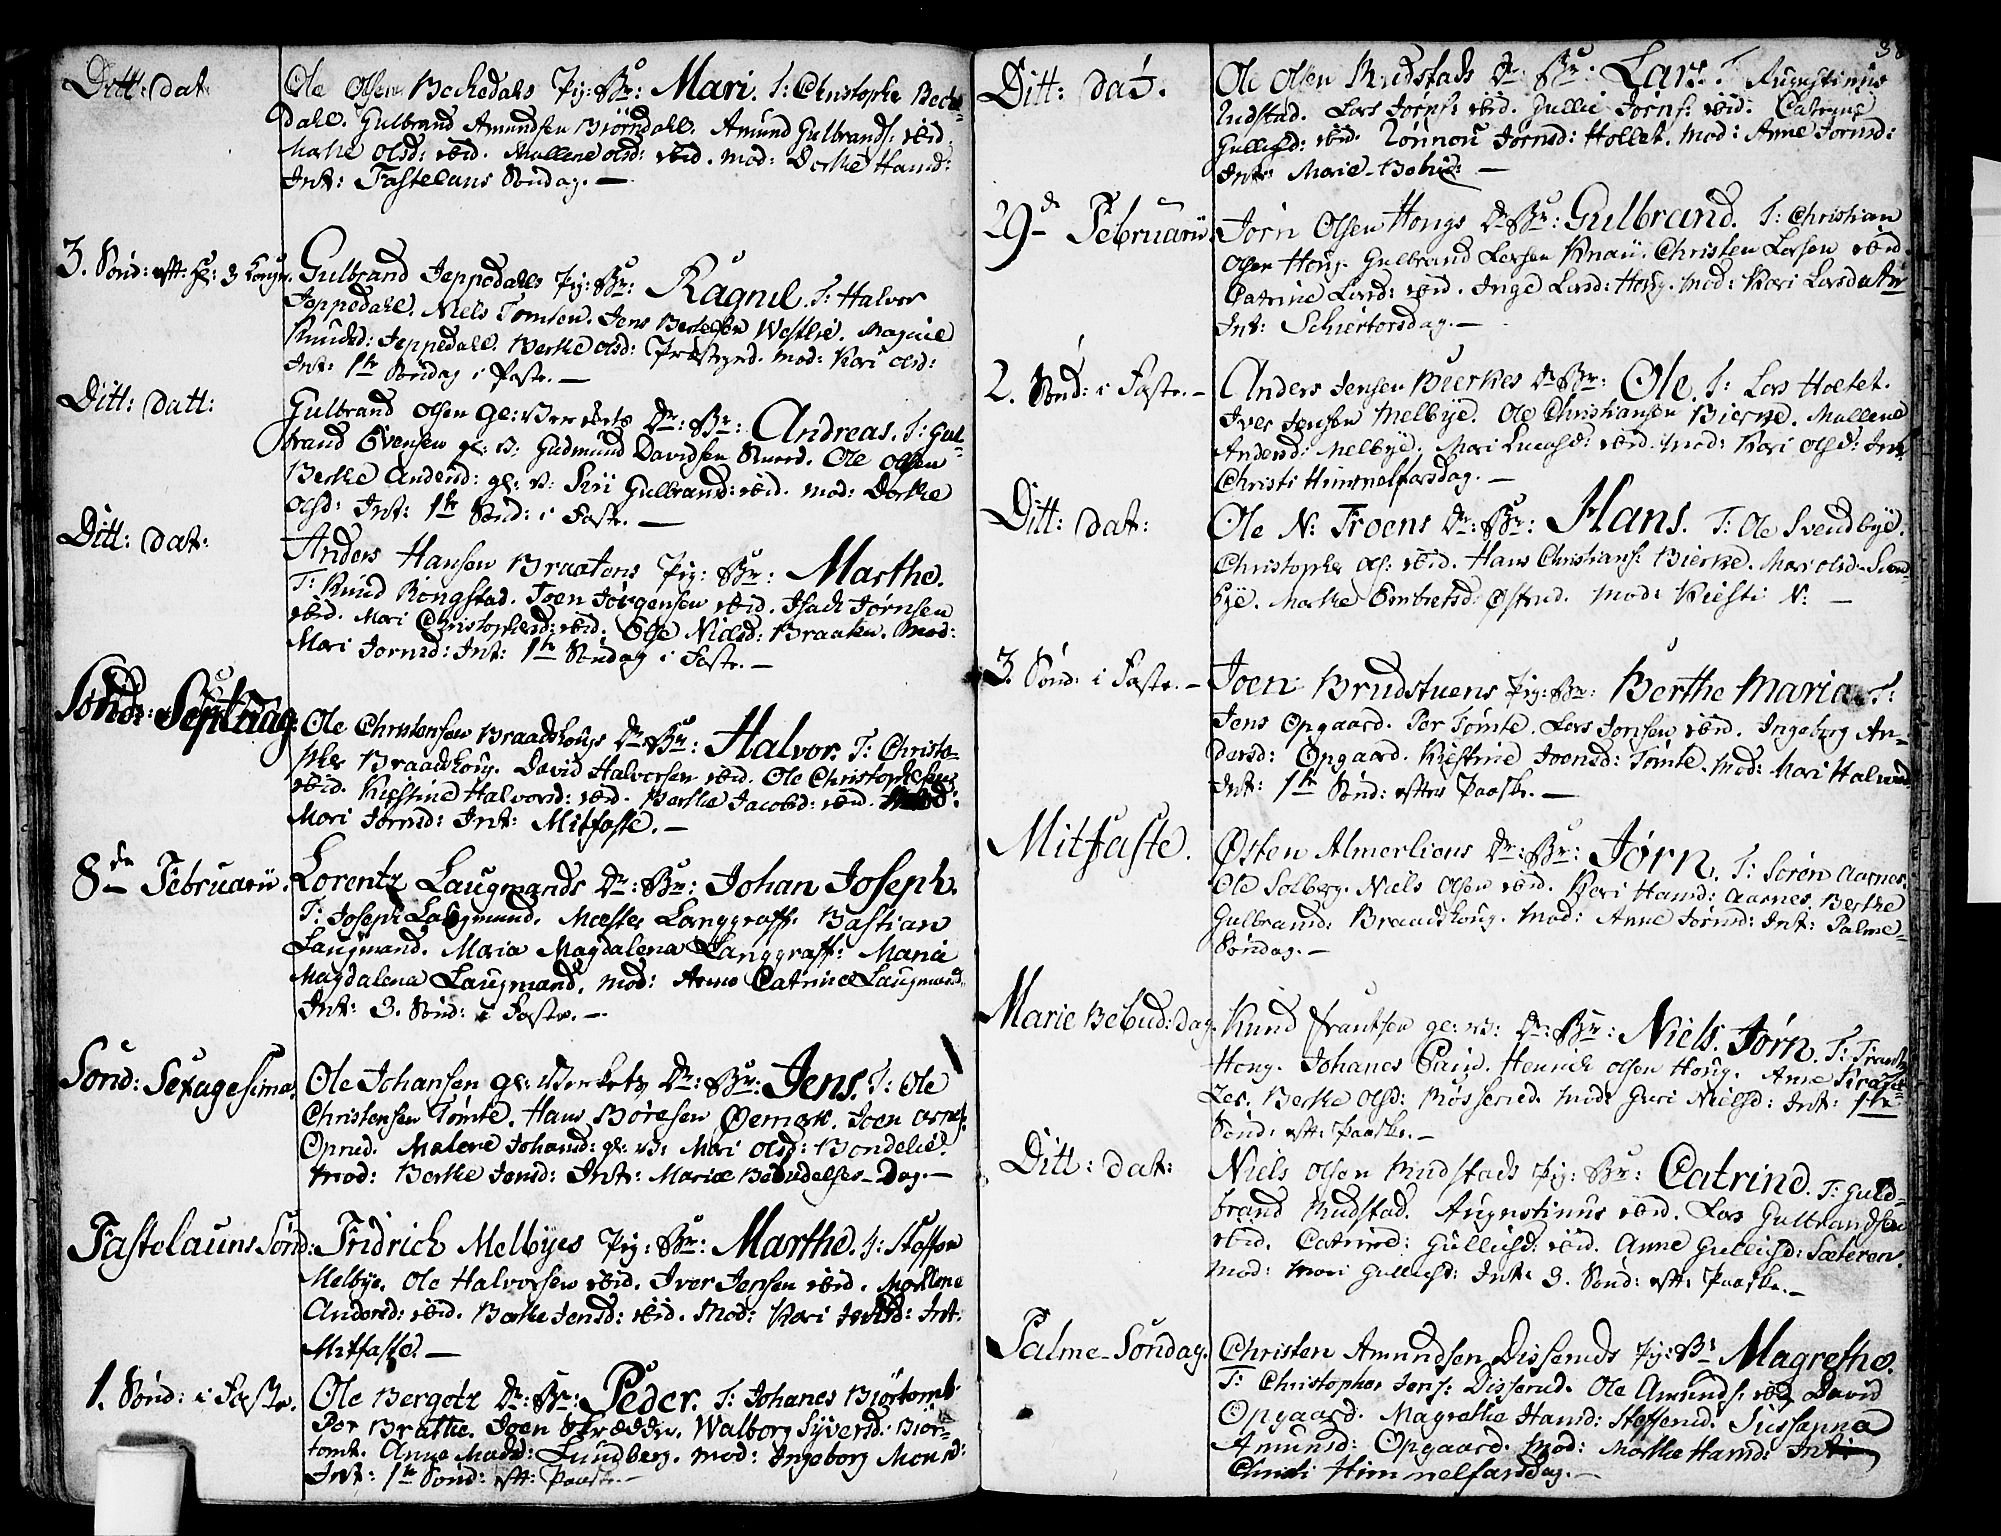 Ditt: dat:
Ole Olsen Beckedals Pig: Br: Mari. T: Christopher Becke-
dahl. Gulbrand Amundsen Biørndahl. Amund Gulbrands: ibid.
Marthe Olsd: ibid. Mallene olsd: ibid. mod: Dorthe Hansd:
Int: Fastelauns Søndag. —
3. Sønd: eftt: H: 3 Konger.
Gulbrand Jeppedahls Pig: Br: Ragnil. T: Halvor
Jeppedahl. Niels Tomten. Jens Westlie. Magnil
Knudsd: Jeppedahl. Berthe olsd: mod: Kari olsd:
Int: 1te Søndag i Faste. —
Ditt: datt:
Gulbrand Olsen gl: Verckets Dr: Br: Andreas. T: Gul-
brand Evensen gl: v: Gudmund Davidsen Ole Olsen
Berthe Andersd: gl: v: Siri Gulbrandsd: ibid. mod: Dorthe
Olsd: Int: 1te Sønd: i Faste. —
Ditt: dat:
Anders Hansen Braatens Pig: Br: Marthe.
T: Knud Rongstad. Joen Jørgensen ibid. Isach Jørnsen
ibid. Mari Christophersd: ibid. Else Nielsd: Braaten. Mod:
Mari Jørnsd: Int: 1te Søndag i Faste. —
Sønd: Septuag:
Ole Christensen Braadhougs Dr: Br: Halvor. T: Christo-
pher Braadhoug. David Halvorsen ibid. Ole Christophersen
ibid. Kiestine Halvorsd: ibid. Berthe Jacobsd: ibid. Mod:
Mari Jørnsd: Int: Mitfaste. —
8de Februarii.
Lorentz Laugmands Dr: Br: Johan Joseph.
T: Joseph Laugmand. Mester Langgraff. Bastian
Laugmand. Maria Magdalena Langgraff: Maria
Magdalena Laugmand. mod: Anne Catrine Laugmand.
Int: 3. Sønd: i Faste. —
Sønd: Sexagesima.
Ole Johansen gl: Verckets Dr: Br: Jens. T: Ole
Christensen Tømte. Hans Børesen Øemark. Joen
Oprud. Malene Johansd: gl: v: Mari Olsd: Bondelie.
mod: Berthe Jensd: Int: Mariæ Bebudelses-Dag. —
Fastelauns Sønd:
Fridrich Melbyes Pig: Br: Marthe. T: Staffen
Melbye. Ole Halvorsen ibid. Iver Jensen ibid. Mallene
Andersd: ibid. Berthe Jensd: ibid. Mod: Kari Int:
Mitfaste. —
1. Sønd: i Faste.
Ole Bergotz Dr: Br: Peder. T: Johanes Biørtomt
Per Brathe. Joen Skredder. Walborg Syversd: Biør-
tomt. Anne Madsd: Lundberg. mod: Ingeborg Monsd:
Int: 1te Sønd: eftt: Paaske. —
38
Ditt: dat.
Ole Olsen Rudstads Dr: Br: Lars. T: Augustinus
Rudstad. Lars Jørns: ibid. Gullic Jørns: ibid: Catrine
Gullichsd: ibid. Rønnou Jørnsd: Hollet. mod: Anne Jørnsd:
Int: Marie-Bebud: —
29de Februarii.
Jørn Olsen Hougs Dr: Br: Gulbrand. T: Christian
Olsen Houg. Gulbrand Larsen Knau. Christen Larsen ibid.
Catrine Larsd: ibid. Inge Larsd: Houg. Mod: Kari Larsdatter
Int: Schiertorsdag. —
2. Sønd: i Faste. —
Anders Jensen Bierkes Dr: Br: Ole. T: Lars Holtet.
Iver Jensen Melbye. Ole Christiansen Bierke. Mallene
Andersd: Melbye. Mari Lucasd: ibid. mod: Kari Olsd: Int:
Christi Himmelfarsdag. —
Ditt: dat:
Ole N: Troens Dr: Br: Hans. T: Ole Svendbye.
Christopher Ols: ibid. Hans Christians: Bierke. Mari olsd: Svend-
bye. Marthe Embretsd: Østrud. Mod: Kiesti N: —
3. Sønd: i Faste. —
Joen Brudstuens Pig: Br: Berthe Maria. T:
Jens Opgaard. Per Tømte. Lars Jonsen ibid. Ingeborg An-
dersd: Opgaard. Kiestine Joensd: Tømte. Mod: Mari Halvorsd:
Int: 1te Sønd: efter Paaske. —
Mitfaste.
Østen Almerliens Dr: Br: Jørn. T: Søren Aarnes.
Ole Solberg. Niels Olsen ibid. Kari Hansd: Aarnes. Berthe
Gulbransd: Braadhoug. Mod: Anne Jørnsd: Int: Palme-
Søndag. —
Marie Bebud: Dag.
Knud Frantsen gl: v: Dr: Br: Niels Jørn. T: Frants
Houg. Johanes Henrich Olsen Houg. Anne
Berthe Olsd: Røsserud. Mod: Guri Nielsd: Int: 1te
Sønd: eftt: Paaske. —
Ditt: dat:
Niels Olsen Rudstads Pig: Br: Catrine. T: Guld-
brand Rudstad. Augustinus ibid. Lars Gulbrandsen
ibid. Catrine Gullichsd: ibid. Anne Gullichsd: Sæteren.
Mod: Mari Gullichsd: Int: 3. Sønd: eftt: Paaske. —
Palme-Søndag.
Christen Amundsen Disseruds Pig: Br: Magrethe.
T: Christopher Jens: Disserud. Ole Amunds: ibid. David
Opgaard. Magrethe Hansd: Stafferud. Sussanna
Amunsd: Opgaard. Mod: Marthe Hansd: Int:
Christi Himmelfarsdag. —